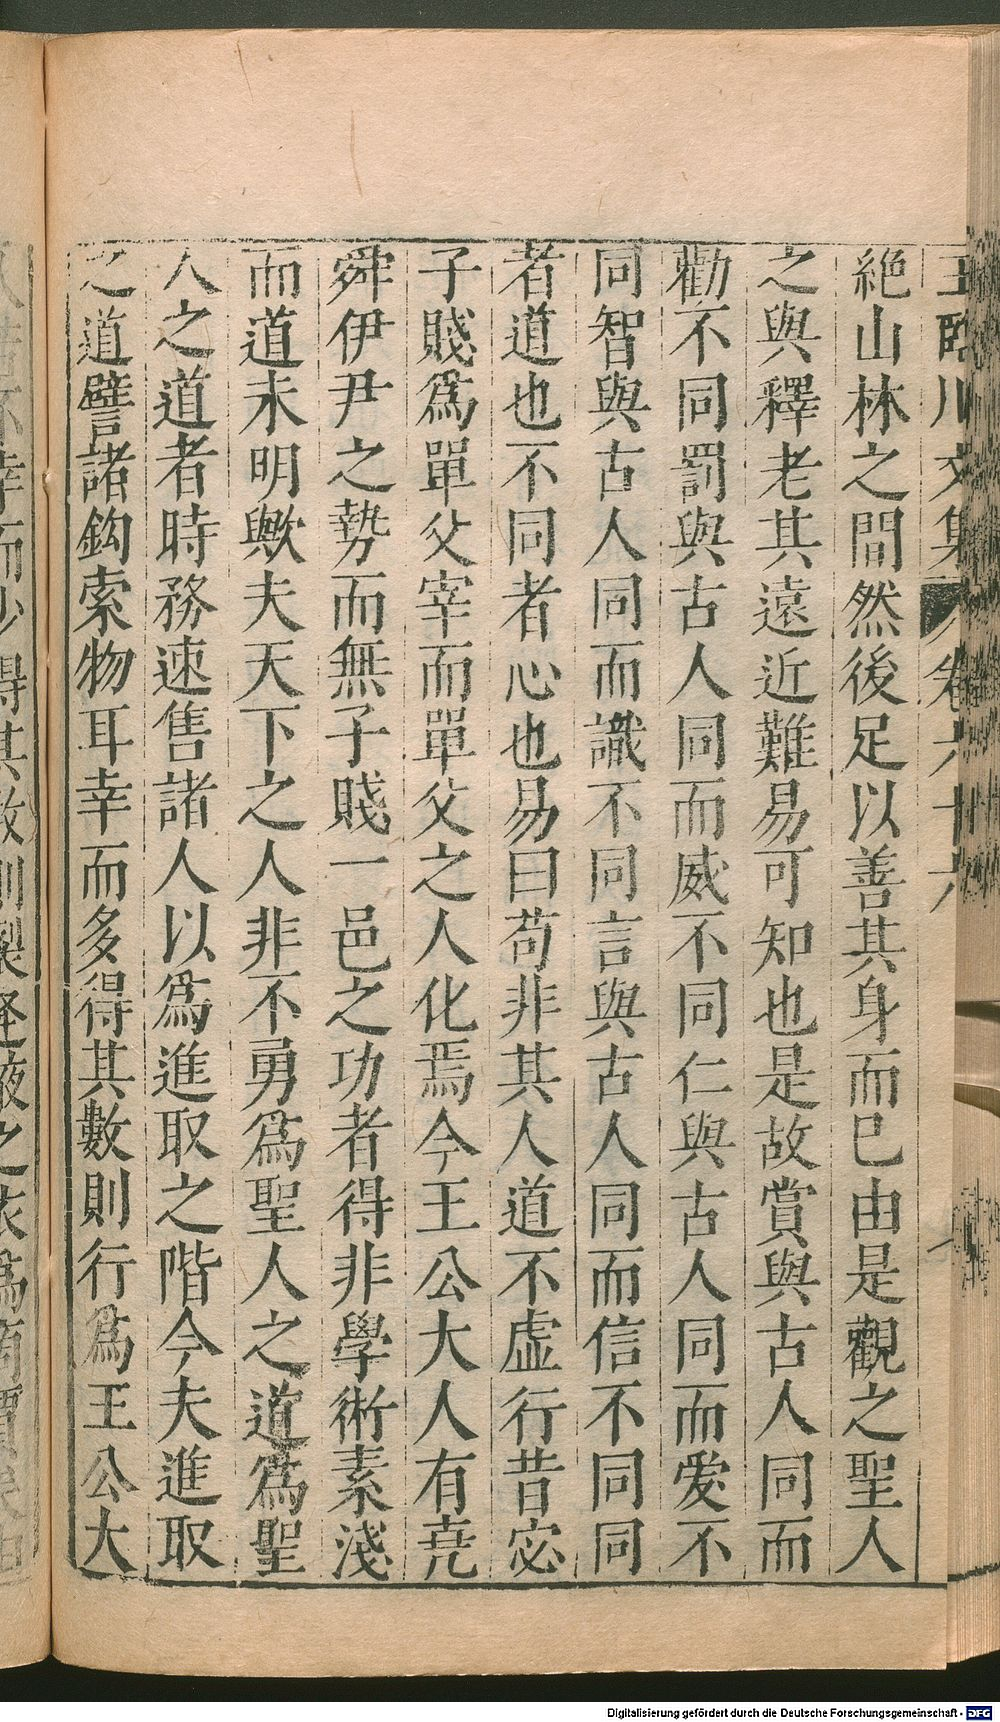 王臨川文集 卷六十六
絶山林之間然後足以善其身而已由是觀之聖人
之與釋老其遠近難易可知也是故賞與古人同而
勸不同罰與古人同而威不同仁與古人同而愛不
同智與古人同而識不同言與古人同而信不同同
者道也不同者心也易曰苟非其人道不虛行昔宓
子賤爲單父宰而單父之人化焉今王公大人有堯
舜伊尹之勢而無子賤一邑之功者得非學術素淺
而道未明歟夫天下之人非不勇爲聖人之道爲聖
人之道者時務速售諸人以爲進取之階今夫進取
之道譬諸鈎索物耳幸而多得其數則行爲王公大
幸而少得其數則製逢掖之衣爲商賈
Digitalisierung gefördert durch die Deutsche Forschungsgemeinschaft - DFG